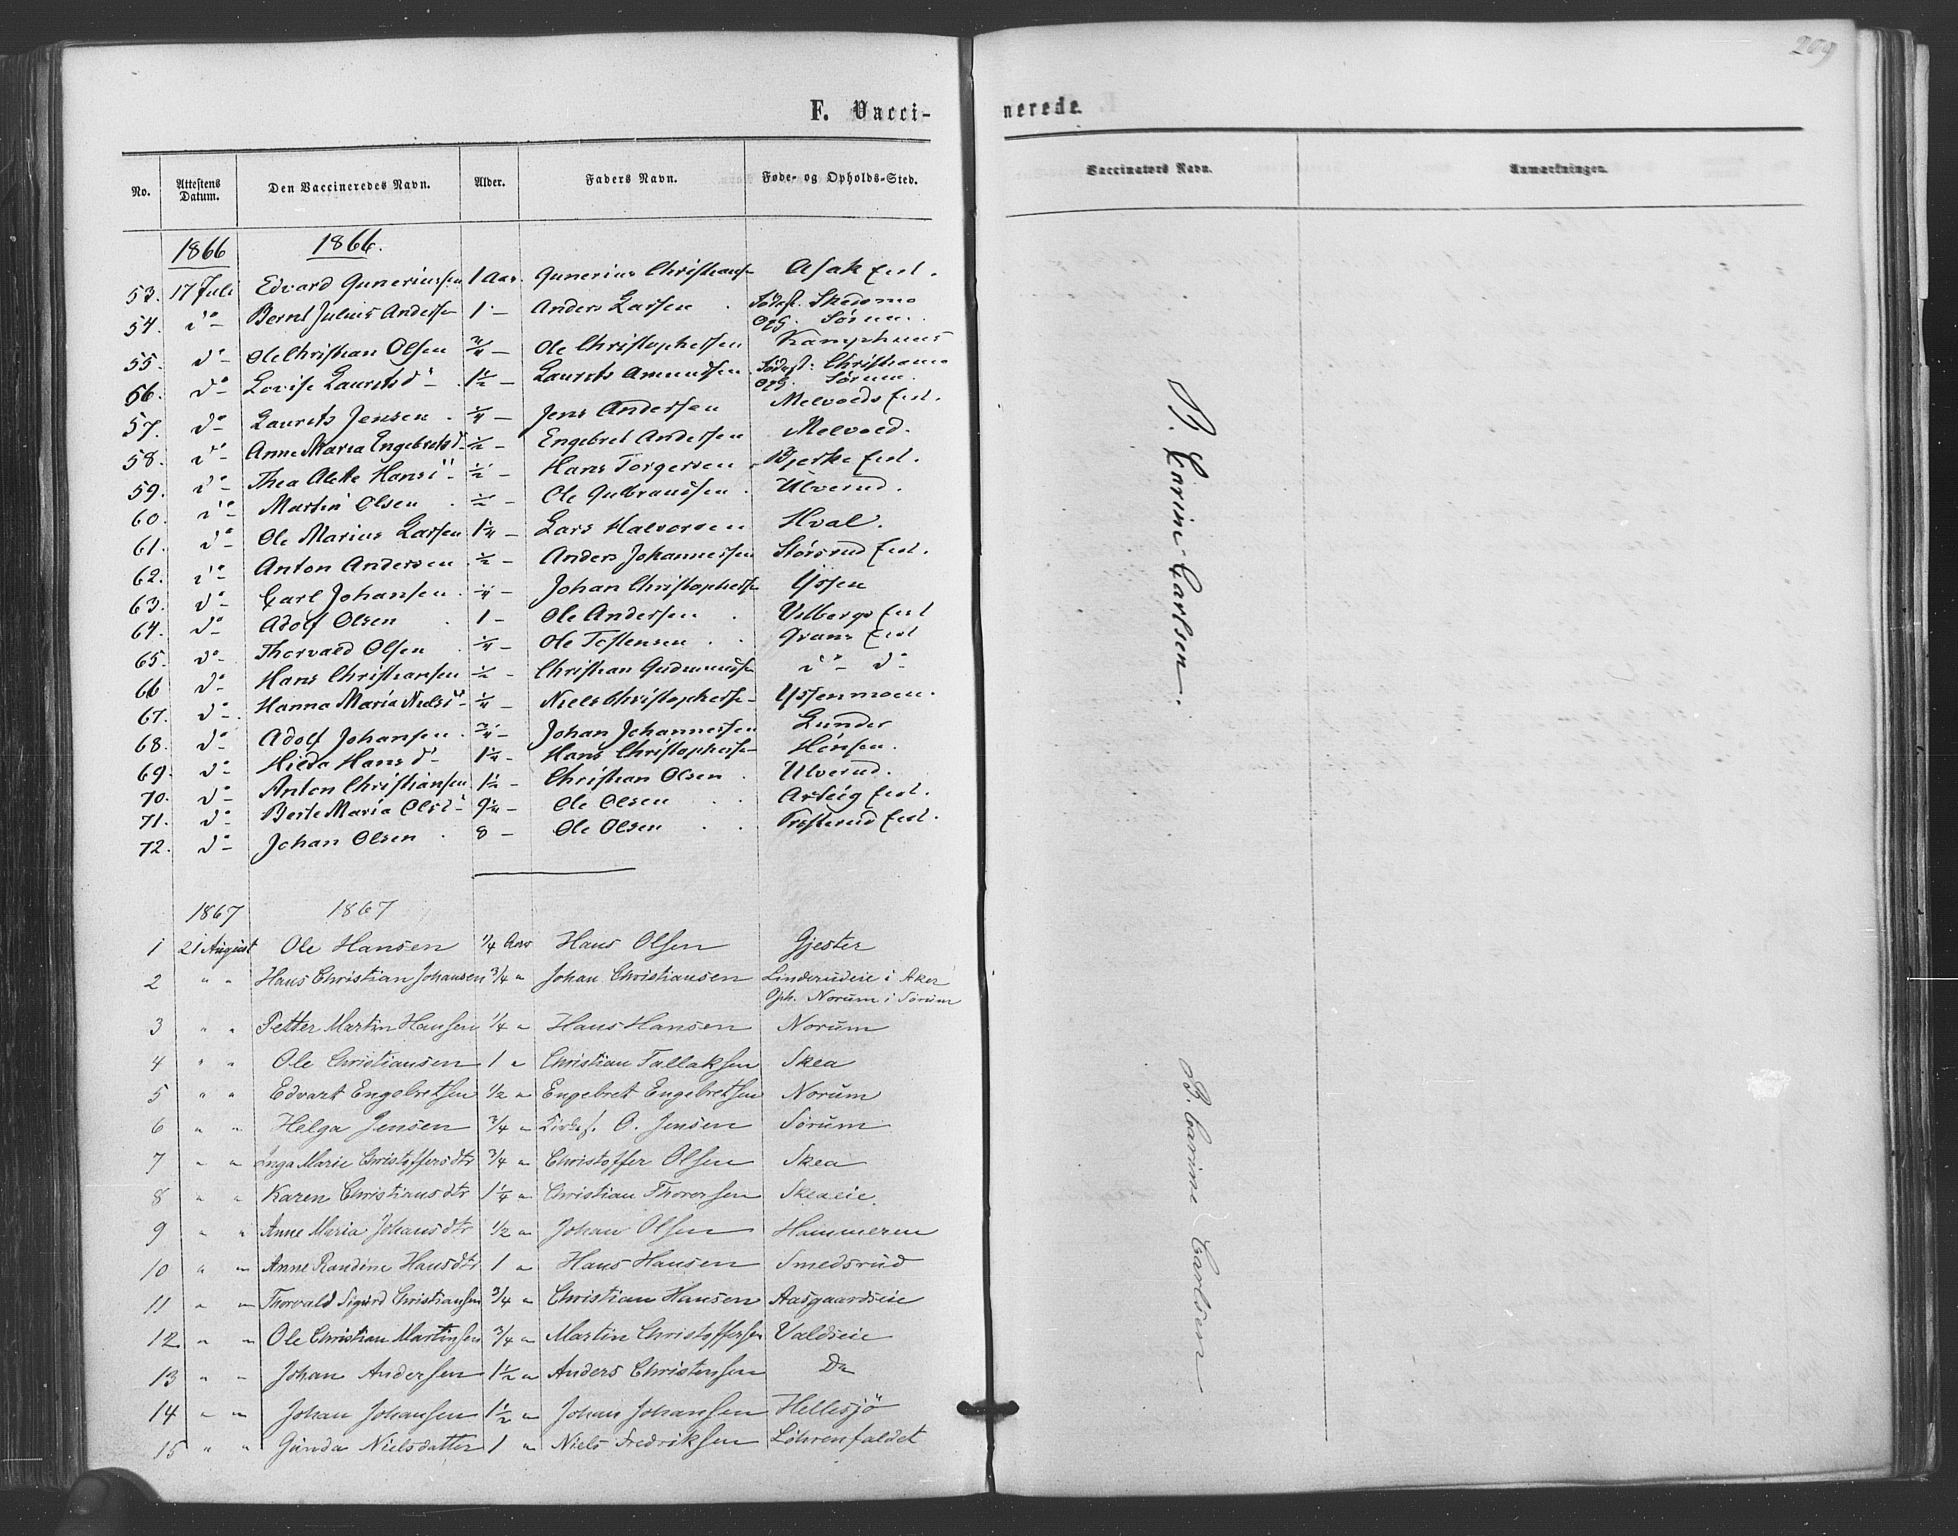 209
F. Vaccinerede.
No. Attestens Datum. Den Vaccineredes Navn. Alder. Faders Navn. Føde- og Opholds-Sted. Vaccinators Navn. Anmærkninger.
1866 1866.
53. 17 Juli Edvard Guneriussen 1 Aar. Gunerius Christians- Asak Eid.
54. do Bernt Julius Andersen 1 - Anders Larsen . Fødest. Skedsmo
Opg. Sørum.
55. do Ole Christian Olsen 3/4 - Ole Christophersen Kamphuus
56. do Lovise Lauritsd - 1 1/2 - Laurits Amundsen . Fødest: Christiania
Opg. Sørum.
57. do Laurits Jensen . 1/4 - Jens Andersen Melvolds Eid.
58. do Anne Maria Engebretsd 1/2 - Engebret Andersen Melvold.
59. do Thea Alette Hansd 1/2 - Hans Torgersen Bjerke Eid.
60. do Martin Olsen . 1/2 - Ole Gulbrandsen . Ulverud.
61. do Ole Marius Larsen 1 1/4 - Lars Halvorsen Hval.
62. do Anton Andersen . 1/2 - Anders Johannessen Størsrud Eid.
63. do Carl Johansen . 1/4 - Johan Christopherse- Yssen
64. do Adolf Olsen . 1 - Ole Andersen . Vilbergs Eid
65. do Thorvald Olsen . 1/4 - Ole Tostensen . . Qvans Eid
66 do Hans Christiansen 1/2 - Christian Gudmundsen do do
67. do Hanna Maria Nielsd 1/4 - Niels Christopherse- Yssenmoen.
68. do Adolf Johansen . 3/4 - Johan Johannessen Lunder
69. do Hilda Hansd - 1 1/4 - Hans Christopherse- Hønsen.
70. do Anton Christiansen 1 1/2 - Christian Olsen . Ulverud.
71. do Berte Maria Olsd - 9 1/4 - Ole Olsen . . Eid.
72. do Johan Olsen . 8 - Ole Olsen . . Eid.
B. Carine Carlsen.
1867 1867
1 21 August Ole Hansen 1/4 Aar Hans Olsen Gjester
2 " " Hans Christian Johansen 3/4 " Johan Christiansen Linderudeie i Aker
Oph. Norum i Sørum
3 " " Petter Martin Hansen 1/4 " Hans Hansen Norum
4 " " Ole Christiansen 1 " Christian Fallaksen Skea
5 " " Edvart Engebretsen 1/2 " Engebret Engebretsen Norum
6 " " Helga Jensen 3/4 " O. Jensen Sørum
7 " " Inga Marie Christoffersdtr 3/4 " Christoffer Olsen Skea
8 " " Karen Christiansdtr 1 1/4 " Christian Thorersen Skeaeie
9 " " Anne Maria Johansdtr 1/2 " Johan Olsen Hammeren
10 " " Anne Randine Hansdtr 1 " Hans Hansen Smedsrud
11 " " Thorvald Sigurd Christiansen 3/4 " Christian Hansen Aasgaardseie
12 " " Ole Christian Martinsen 3/4 " Martin Christoffersen Valdseie
13 " " Johan Andersen 1 1/2 " Anders Christensen Do
14 " " Johan Johansen 1 1/2 " Johan Johansen Hellesjö
15 " " Gunda Nielsdatter 1 " Niels Fredriksen Löhrenfaldet
B. Carine Carlsen